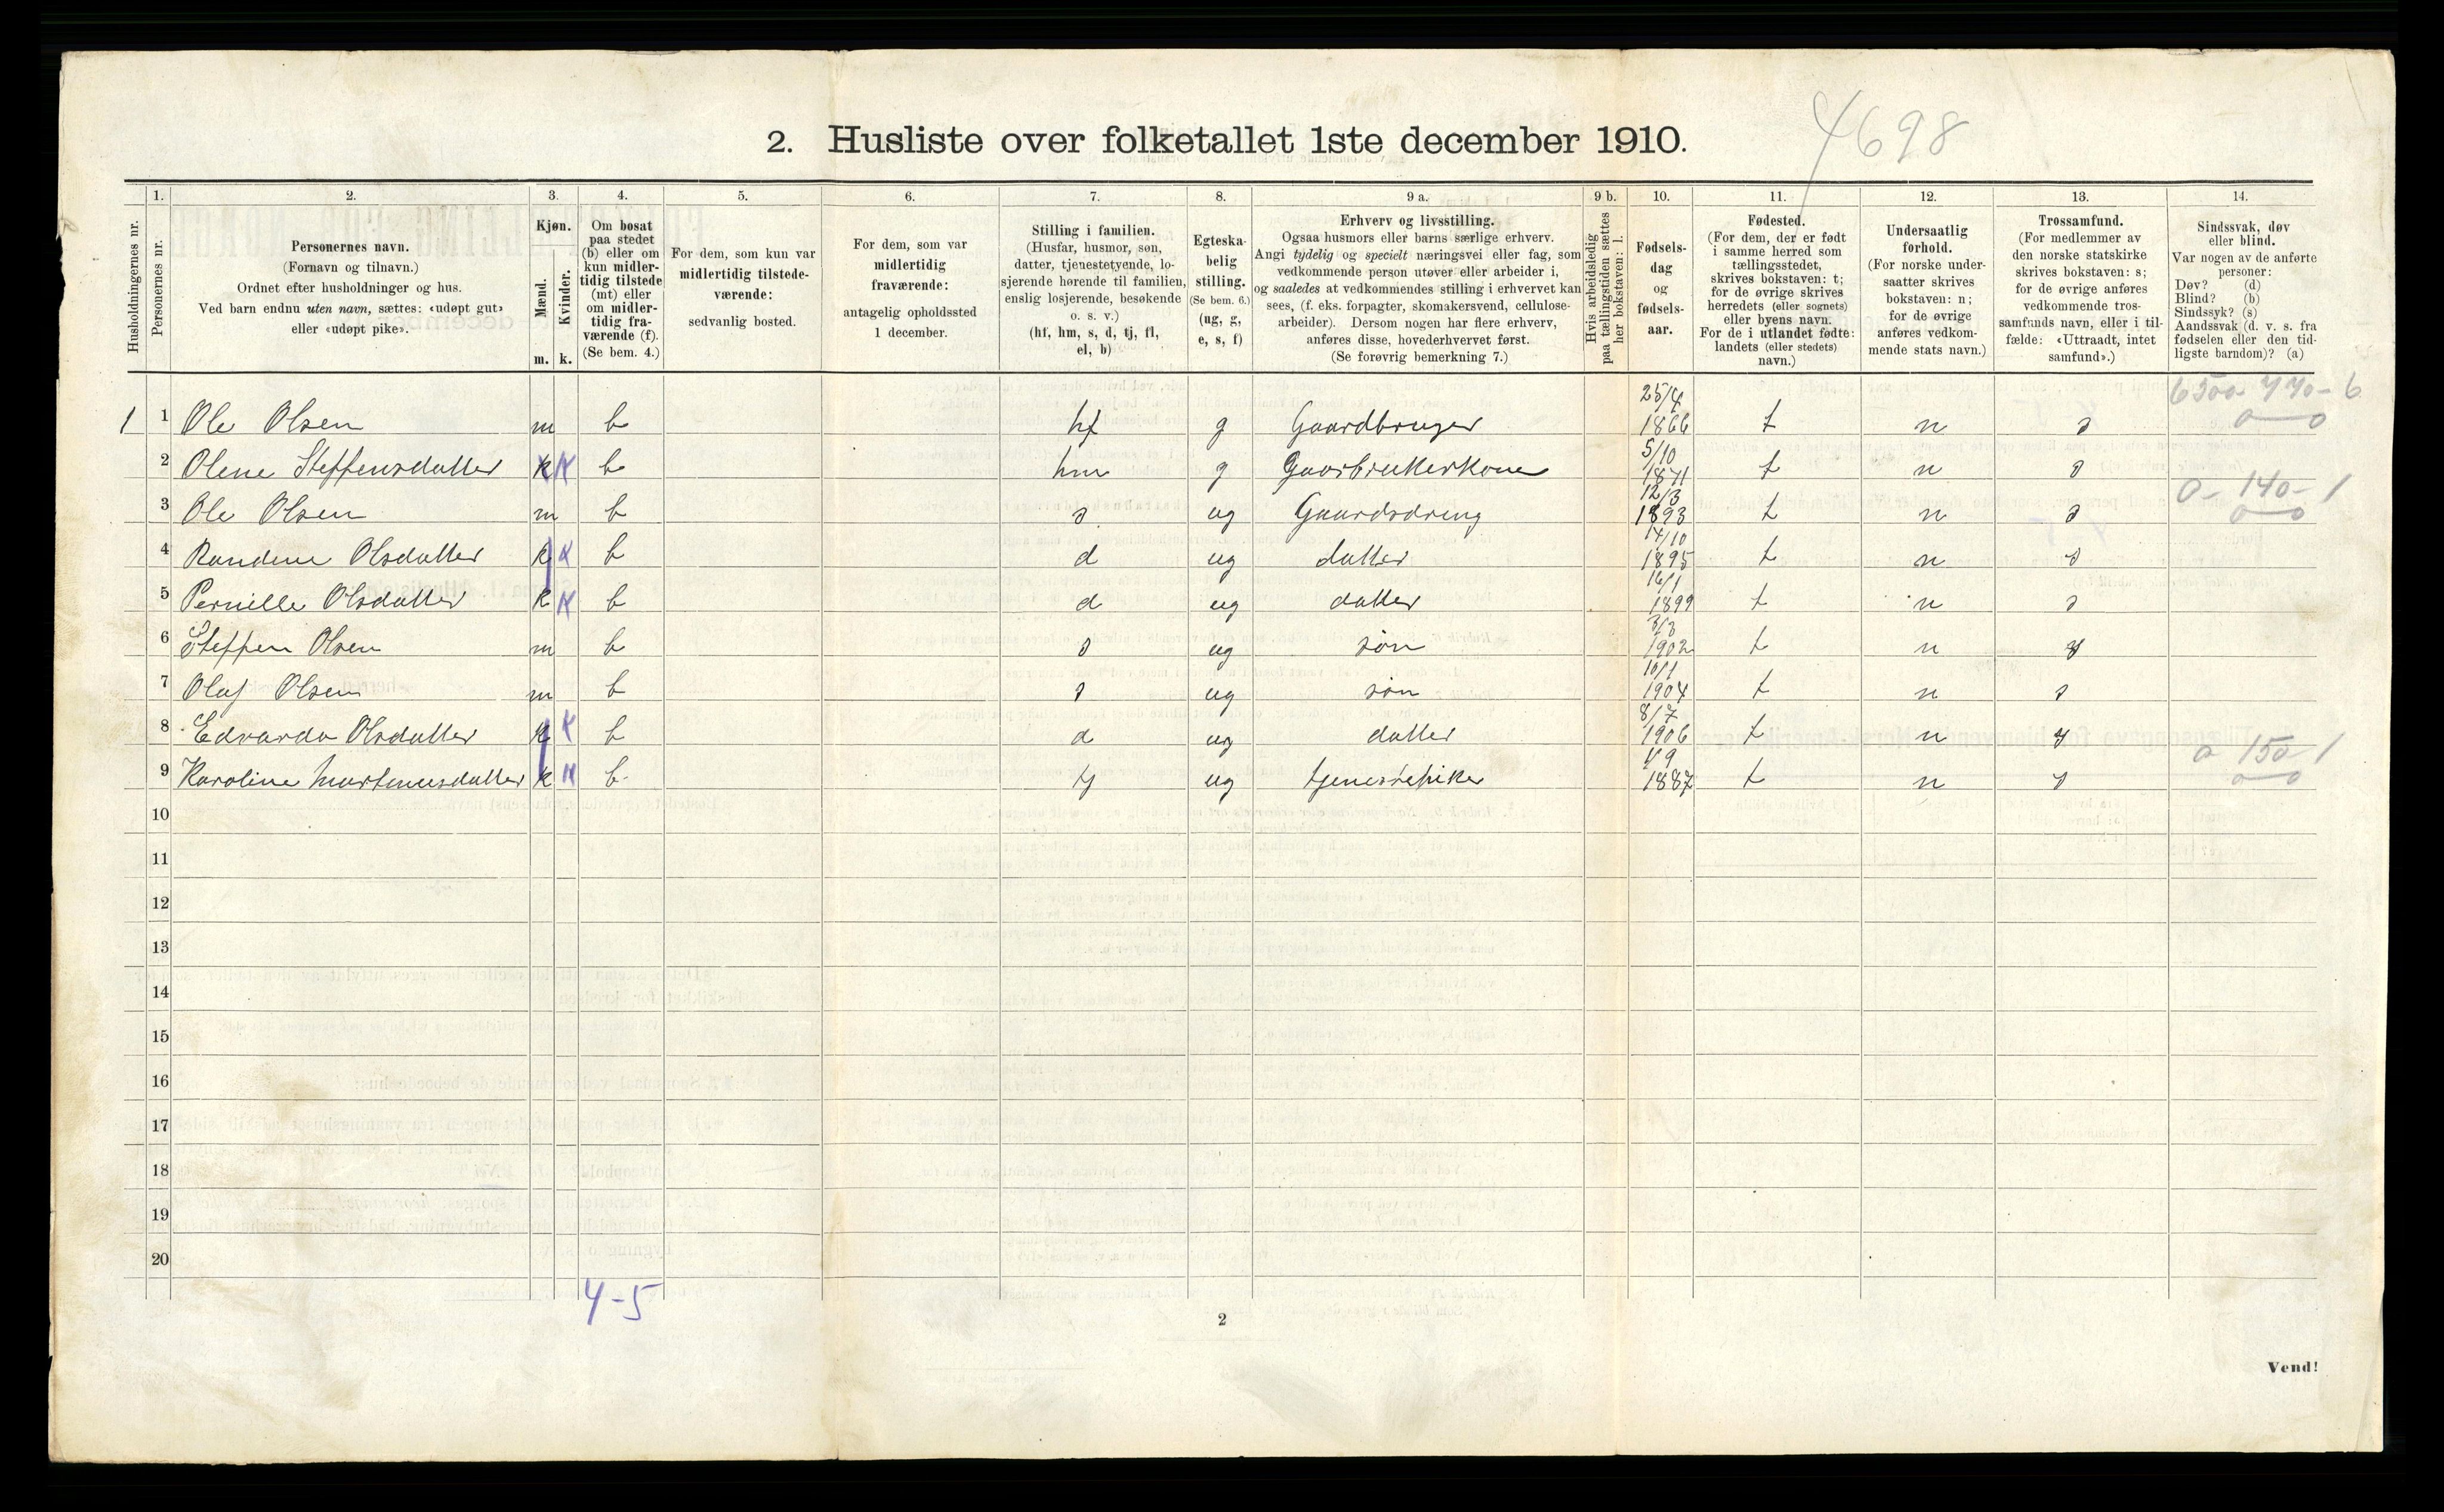 4698
2. Husliste over folketallet 1ste december 1910.
Husholdningernes nr.
1.
Personernes nr.
2.
Personernes navn.
(Fornavn og tilnavn.)
Ordnet efter husholdninger og hus.
Ved barn endnu uten navn, sættes: «udøpt gut»
eller «udøpt pike».
3.
Kjøn.
Mænd.
Kvinder.
m. k.
4.
Om bosat
paa stedet
(b) eller om
kun midler-
tidig tilstede
(mt) eller
om midler-
tidig fra-
værende (f).
(Se bem. 4.)
5.
For dem, som kun var
midlertidig tilstede-
værende:
sedvanlig bosted.
6.
For dem, som var
midlertidig
fraværende:
antagelig opholdssted
1 december.
7.
Stilling i familien.
(Husfar, husmor, søn,
datter, tjenestetyende, lo-
sjerende hørende til familien,
enslig losjerende, besøkende
o. s. v.)
(hf, hm, s, d, tj, fl,
el, b)
8.
Egteska-
belig
stilling.
(Se bem. 6.)
(ug, g,
e, s, f)
9 a.
Erhverv og livsstilling.
Ogsaa husmors eller barns særlige erhverv.
Angi tydelig og specielt næringsvei eller fag, som
vedkommende person utøver eller arbeider i,
og saaledes at vedkommendes stilling i erhvervet kan
sees, (f. eks. forpagter, skomakersvend, cellulose-
arbeider). Dersom nogen har flere erhverv,
anføres disse, hovederhvervet først.
(Se forøvrig bemerkning 7.)
9 b.
Hvis arbeidsledig
paa tællingstiden sættes
her bokstaven: l.
10.
Fødsels-
dag
og
fødsels-
aar.
11.
Fødested.
(For dem, der er født
i samme herred som
tællingsstedet,
skrives bokstaven: t;
for de øvrige skrives
herredets (eller sognets)
eller byens navn.
For de i utlandet fødte:
landets (eller stedets)
navn.)
12.
Undersaatlig
forhold.
(For norske under-
saatter skrives
bokstaven: n;
for de øvrige
anføres vedkom-
mende stats navn.)
13.
Trossamfund.
(For medlemmer av
den norske statskirke
skrives bokstaven: s;
for de øvrige anføres
vedkommende tros-
samfunds navn, eller i til-
fælde: «Uttraadt, intet
samfund».)
14.
Sindssvak, døv
eller blind.
Var nogen av de anførte
personer:
Døv? (d)
Blind? (b)
Sindssyk? (s)
Aandssvak (d. v. s. fra
fødselen eller den tid-
ligste barndom)? (a)
6500-770-6
0—0
1 1 Ole Olsen m b hf g Gaardbruger 25/4 1866 t n s
2 Olene Steffensdatter k k b hm g Gaarbrukerkone 5/10 1871 t n s
0-140-1
0—0
3 Ole Olsen m b s ug Gaardsdreng 12/3 1893 t n s
4 Randine Olsdatter k k b d ug datter 14/10 1895 t n s
5 Pernille Olsdatter k k b d ug datter 16/1 1899 t n s
6 Steffen Olsen m b s ug søn 3/3 1902 t n s
7 Olaf Olsen m b s ug søn 10/1 1904 t n s
8 Edvarda Olsdatter k k b d ug datter 8/7 1906 t n s
0 150-1
0—0
9 Karoline Martineusdatter k k b tj ug tjenestepike 1/9 1887 t n s
10
11
12
13
14
15
16
17
18
19
20
4-5
2
Vend!